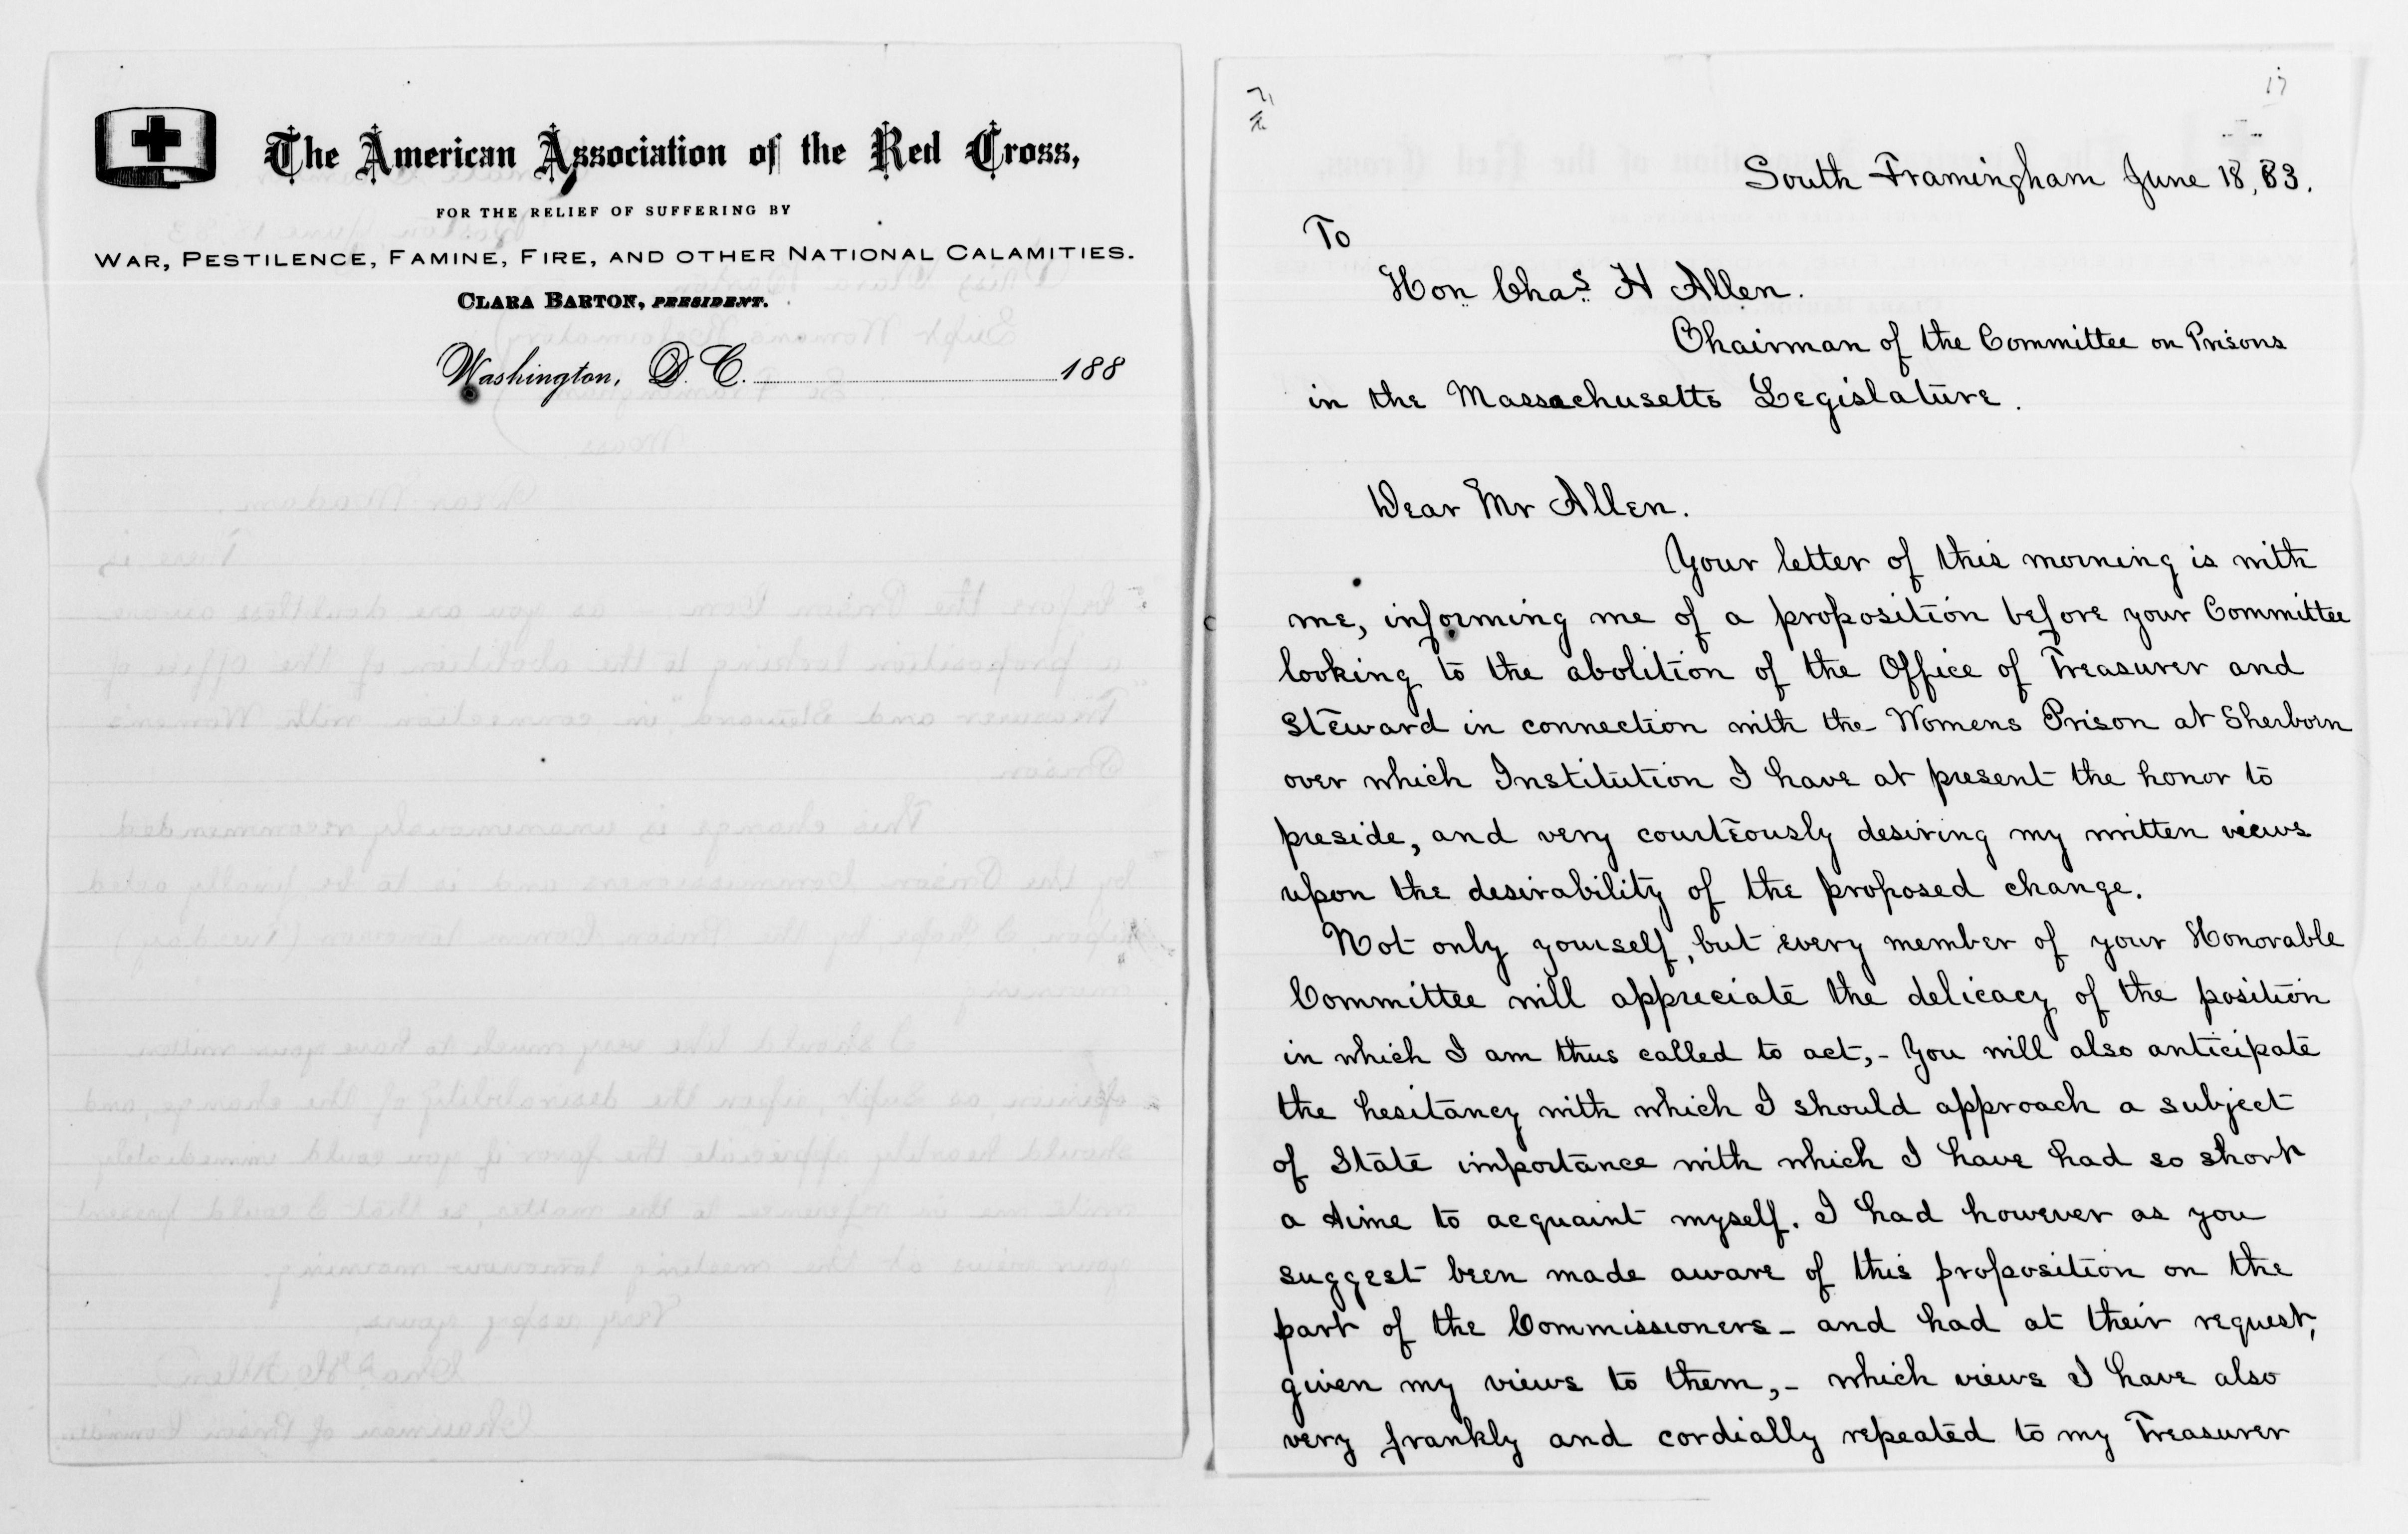 The American Association of the Red Cross,
FOR THE RELIEF OF SUFFERING BY
WAR, PESTILENCE, FAMINE, FIRE, AND OTHER NATIONAL CALAMITIES.
CLARA BARTON, PRESIDENT.
Washington, D. C. 188
South Framingham June 18, 83.
To
Hon Chas H Allen.
Chairman of the Committee on Prisons
in the Massachusetts Legislature.
Dear Mr Allen.
Your letter of this morning is with
me, informing me of a proposition before your Committee
looking to the abolition of the Office of Treasurer and
Steward in connection with the Womens Prison at Sherborn
over which Institution I have at present the honor to
preside, and very courteously desiring my written views
upon the desirability of the proposed change.
Not only yourself, but every member of your Honorable
Committee will appreciate the delicacy of the position
in which I am thus called to act,- You will also anticipate
the hesitancy with which I should approach a subject
of State importance with which I have had so short
a time to acquaint myself. I had however as you
suggest been made aware of this proposition on the
part of the Commissioners - and had at their request,
given my views to them,- which views I have also
very frankly and cordially repeated to my Treasurer